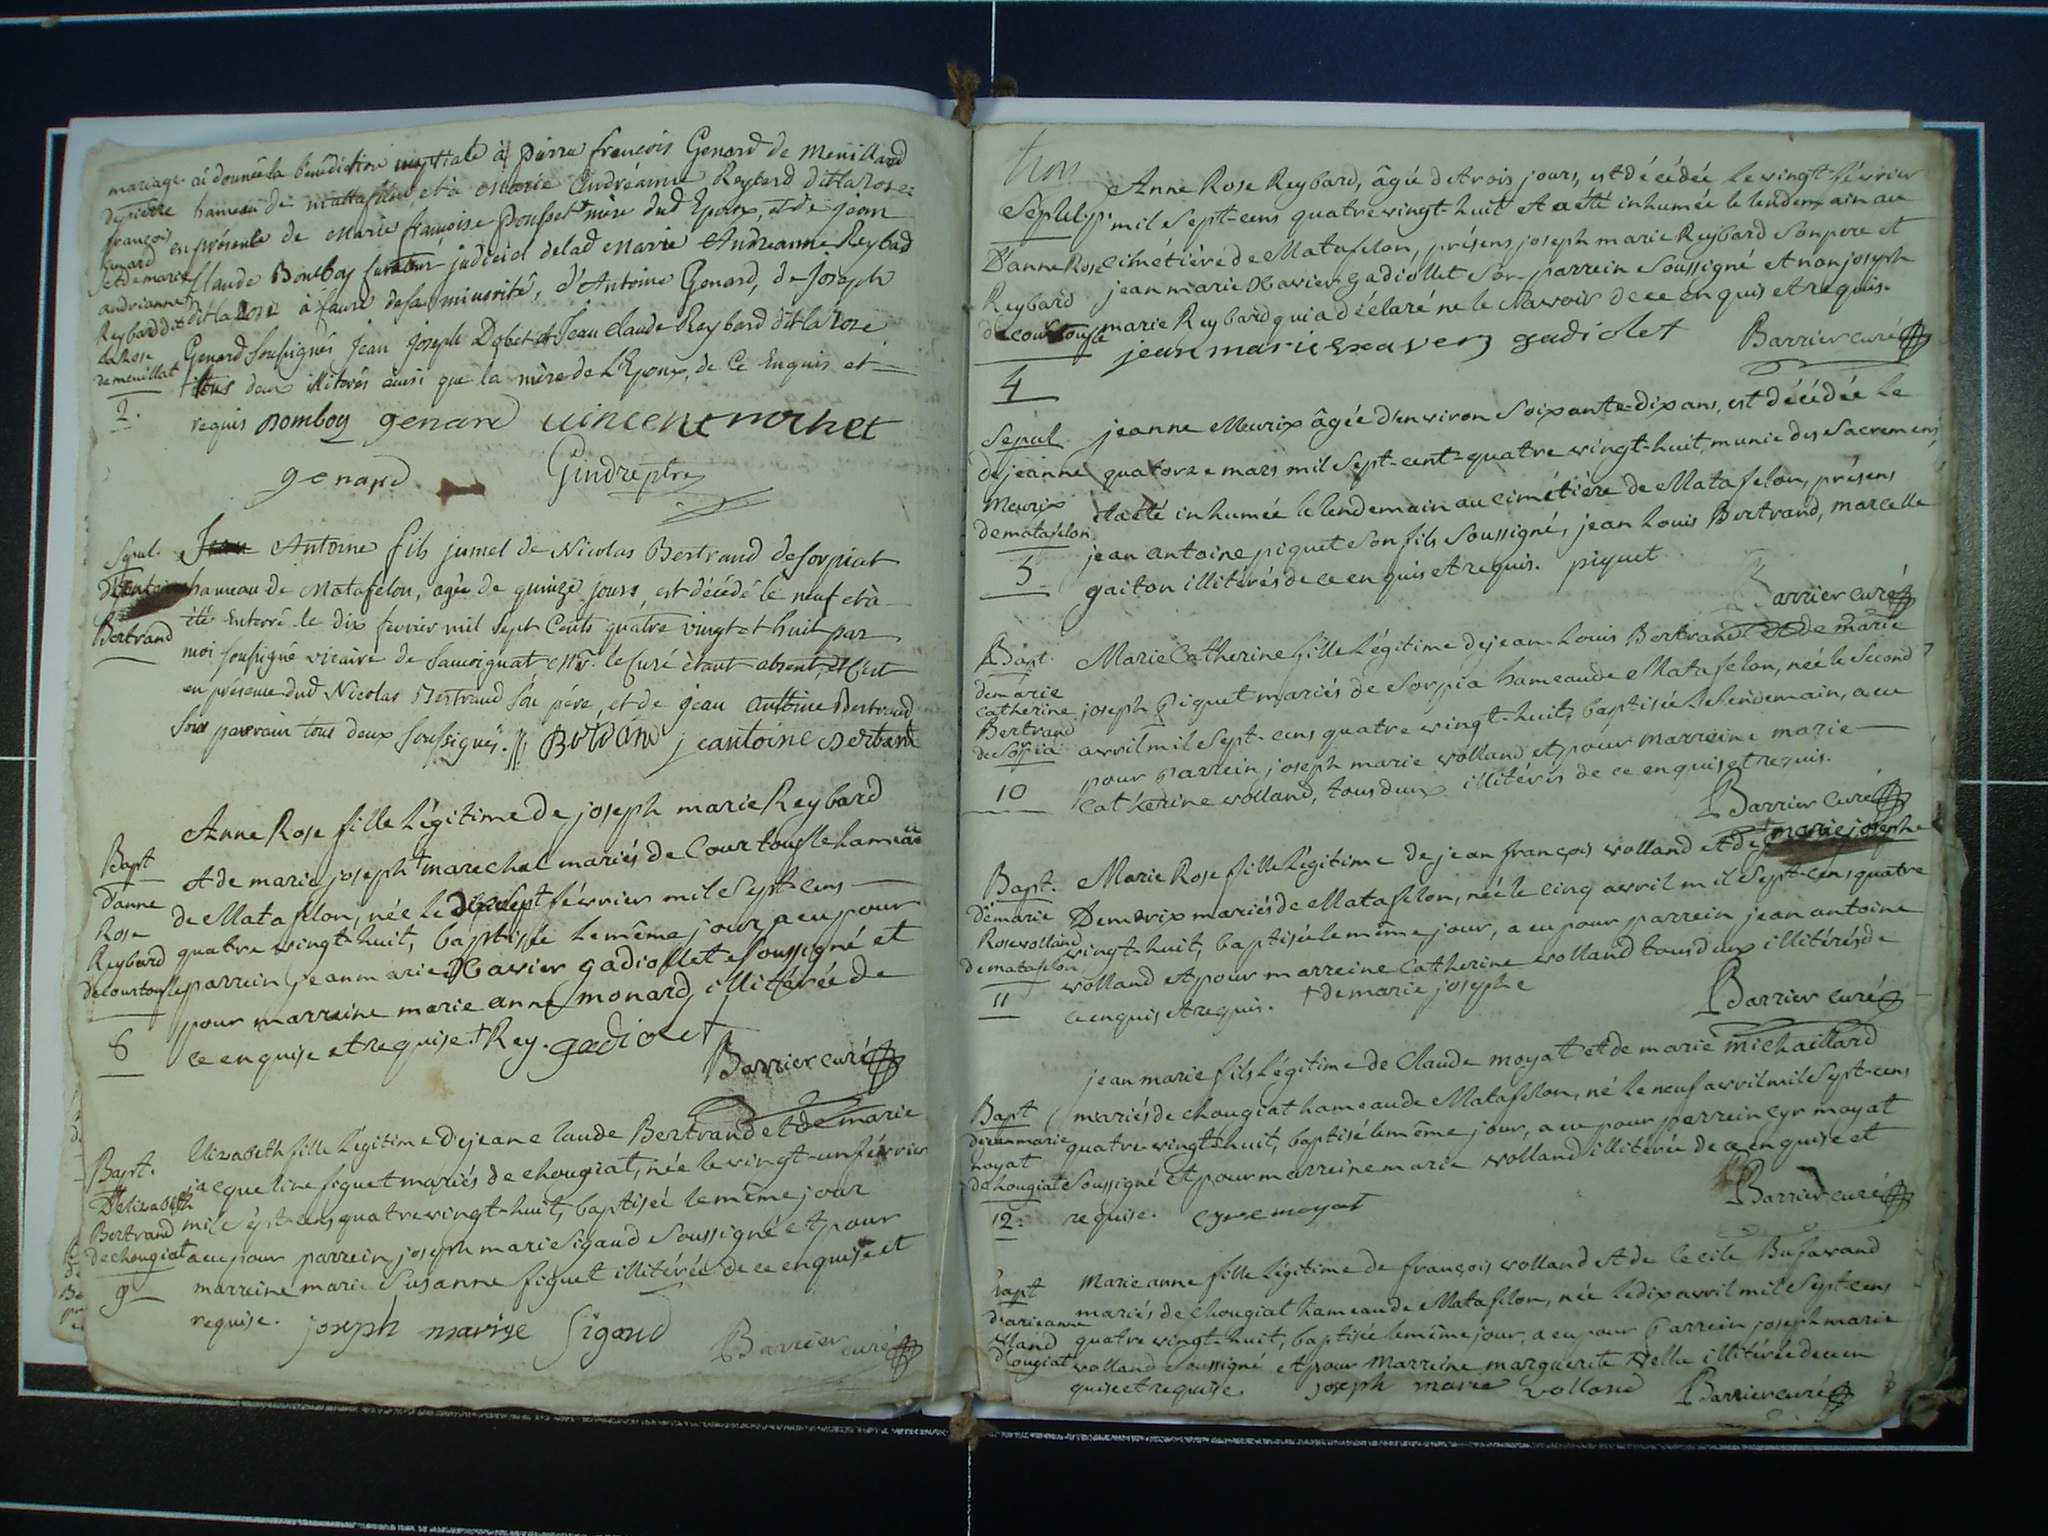 mariage ai donnée la bénédiction nuptiale à pierre françois Genard de Menilland
de pierre hameau de mattafelon et à Marie Andréanne Reybard dit la Rose
françois en présence de Marie françoise Pousset mère dud Epoux, et de jean
Genard
et de marie Claude Bomboy curateur judiciel de lad Marie Andreanne Reybard
andrianne
Reybard dit dit la Rose à cause de sa minorité, d'Antoine Genard, de Joseph
la Rose Genard soussignés Jean Joseph Dobet et Jean Claude Reybard dit la roze
de menillat tous deux illiterés ainsi que la mère de l'Epoux, de Ce Enquis et
2. requis Bomboy genard vincent
genard Gindre ptre
Sepul. Antoine fils jumel de Nicolas Bertrand de Sorpiat
D'antoine hameau de Matafelon, agée de quinze jours, est décédé le neuf et à
Bertrand été Enterré le dix fevrier mil Sept Cents quatre vingt et huit par
moi soussigné vicaire de Samoignat Mr. le Curé étant absent, et C'est
en présence dud Nicolas Bertrand son père, et de jean antoine Bertrand
son parrain tous deux soussignés. Bertrand jeantoine Bertrand
Anne Rose fille légitime de joseph marie Reybard
Bapt et de marie joseph † marechal mariés de Courtoufle hameau
d'anne de Matafelon, née le dix sept février mil Sept-cens
Rose quatre vingt-huit, baptisée le même jour, a eu pour
Reybard parrein jean marie Xavier gadiollet soussigné et
de courtoufle pour marreine marie anne monard, illitérée de
6 ce enquise et requise. † Rey. gadiolet
Barrier curé
Elizabeth fille légitime de jean claude Bertrand et de marie
Bapt. jacqueline figuet mariés de chougiat, née le vingt-un février
D'elizabeth mil Sept-cens quatre vingt-huit, baptisée le même jour
Bertrand a eu pour parrein joseph marie Sigaud soussigné et pour
de chougiat marreine marie Susanne figuet illitérée de ce enquise et
9 requise. joseph marie Sigaud Barrier curé
Anne Rose Reybard, âgée de trois jours, est décédée le vingt février
Sepult. mil Sept-cens quatre vingt-huit et a été inhumée le lendemain au
D'anne Rose cimétière de Matafelon, présens joseph marie Reybard son pere et
Reybard jean marie Xavier gadiollet son parrein soussigné et non joseph
de courtoufle marie Reybard qui a déclaré ne le savoir de ce enquis et requis.
jean marie exaver gadiolet Barrier curé
4
Sepul jeanne Meurix âgée d'environ soixante-dix ans, est décédée le
de jeanne quatorze mars mil Sept-cent-quatre vingt-huit, munie des Sacremens,
Meurix et a été inhumée le lendemain au cimétière de Matafelon, présens
de matafelon jean antoine piquet son fils soussigné, jean louis Bertrand, marcelle
5 gaiton illitérés de ce enquis et requis. piquet
Barrier curé
Bapt. Marie Catherine fille légitime de jean-louis Bertrand et de marie
de marie joseph Piquet mariés de Sorpia hameau de Matafelon, née le second
catherine
Bertrand avril mil Sept-cens quatre vingt-huit, baptisée le lendemain, a eu
de Sorpia pour parrein joseph marie volland et pour marreine marie
10 catherine volland, tous deux illitérés de ce enquis et requis.
Barrier curé
Bapt. Marie Rose fille légitime de jean françois volland et de † marie josephe
de marie Demurix mariés de Matafelon, née le cinq avril mil Sept-cens quatre
Rose volland vingt-huit, baptisée le même jour, a eu pour parrein jean antoine
de matafelon volland et pour marreine Catherine volland tous deux illitérés de
11 ce enquis et requis. † de marie josephe Barrier curé
jean marie fils légitime de Claude moyat et de marie michaillard
Bapt mariés de chougiat hameau de Matafelon, né le neuf avril mil Sept-cens
de jean marie quatre vingt-huit, baptisé le même jour, a eu pour parrein cyr moyat
moyat
de chougiat soussigné et pour marreine marie volland illitérée de ce enquise et
12. requise. cyre moyat Barrier curé
Bapt Marie anne fille légitime de françois volland et de Cecile Bufavand
mariés de chougiat hameau de Matafelon, née le dix avril mil Sept-cens
quatre vingt-huit, baptisée le même jour, a eu pour parrein joseph marie
volland soussigné et pour Marreine marguerite vella illitérée de ce en
quise et requise. joseph marie volland Barrier curé